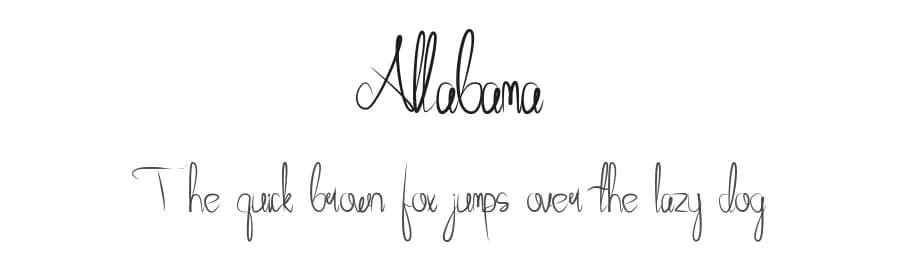 Allabana
The quick brown fox jumps over the lazy dog